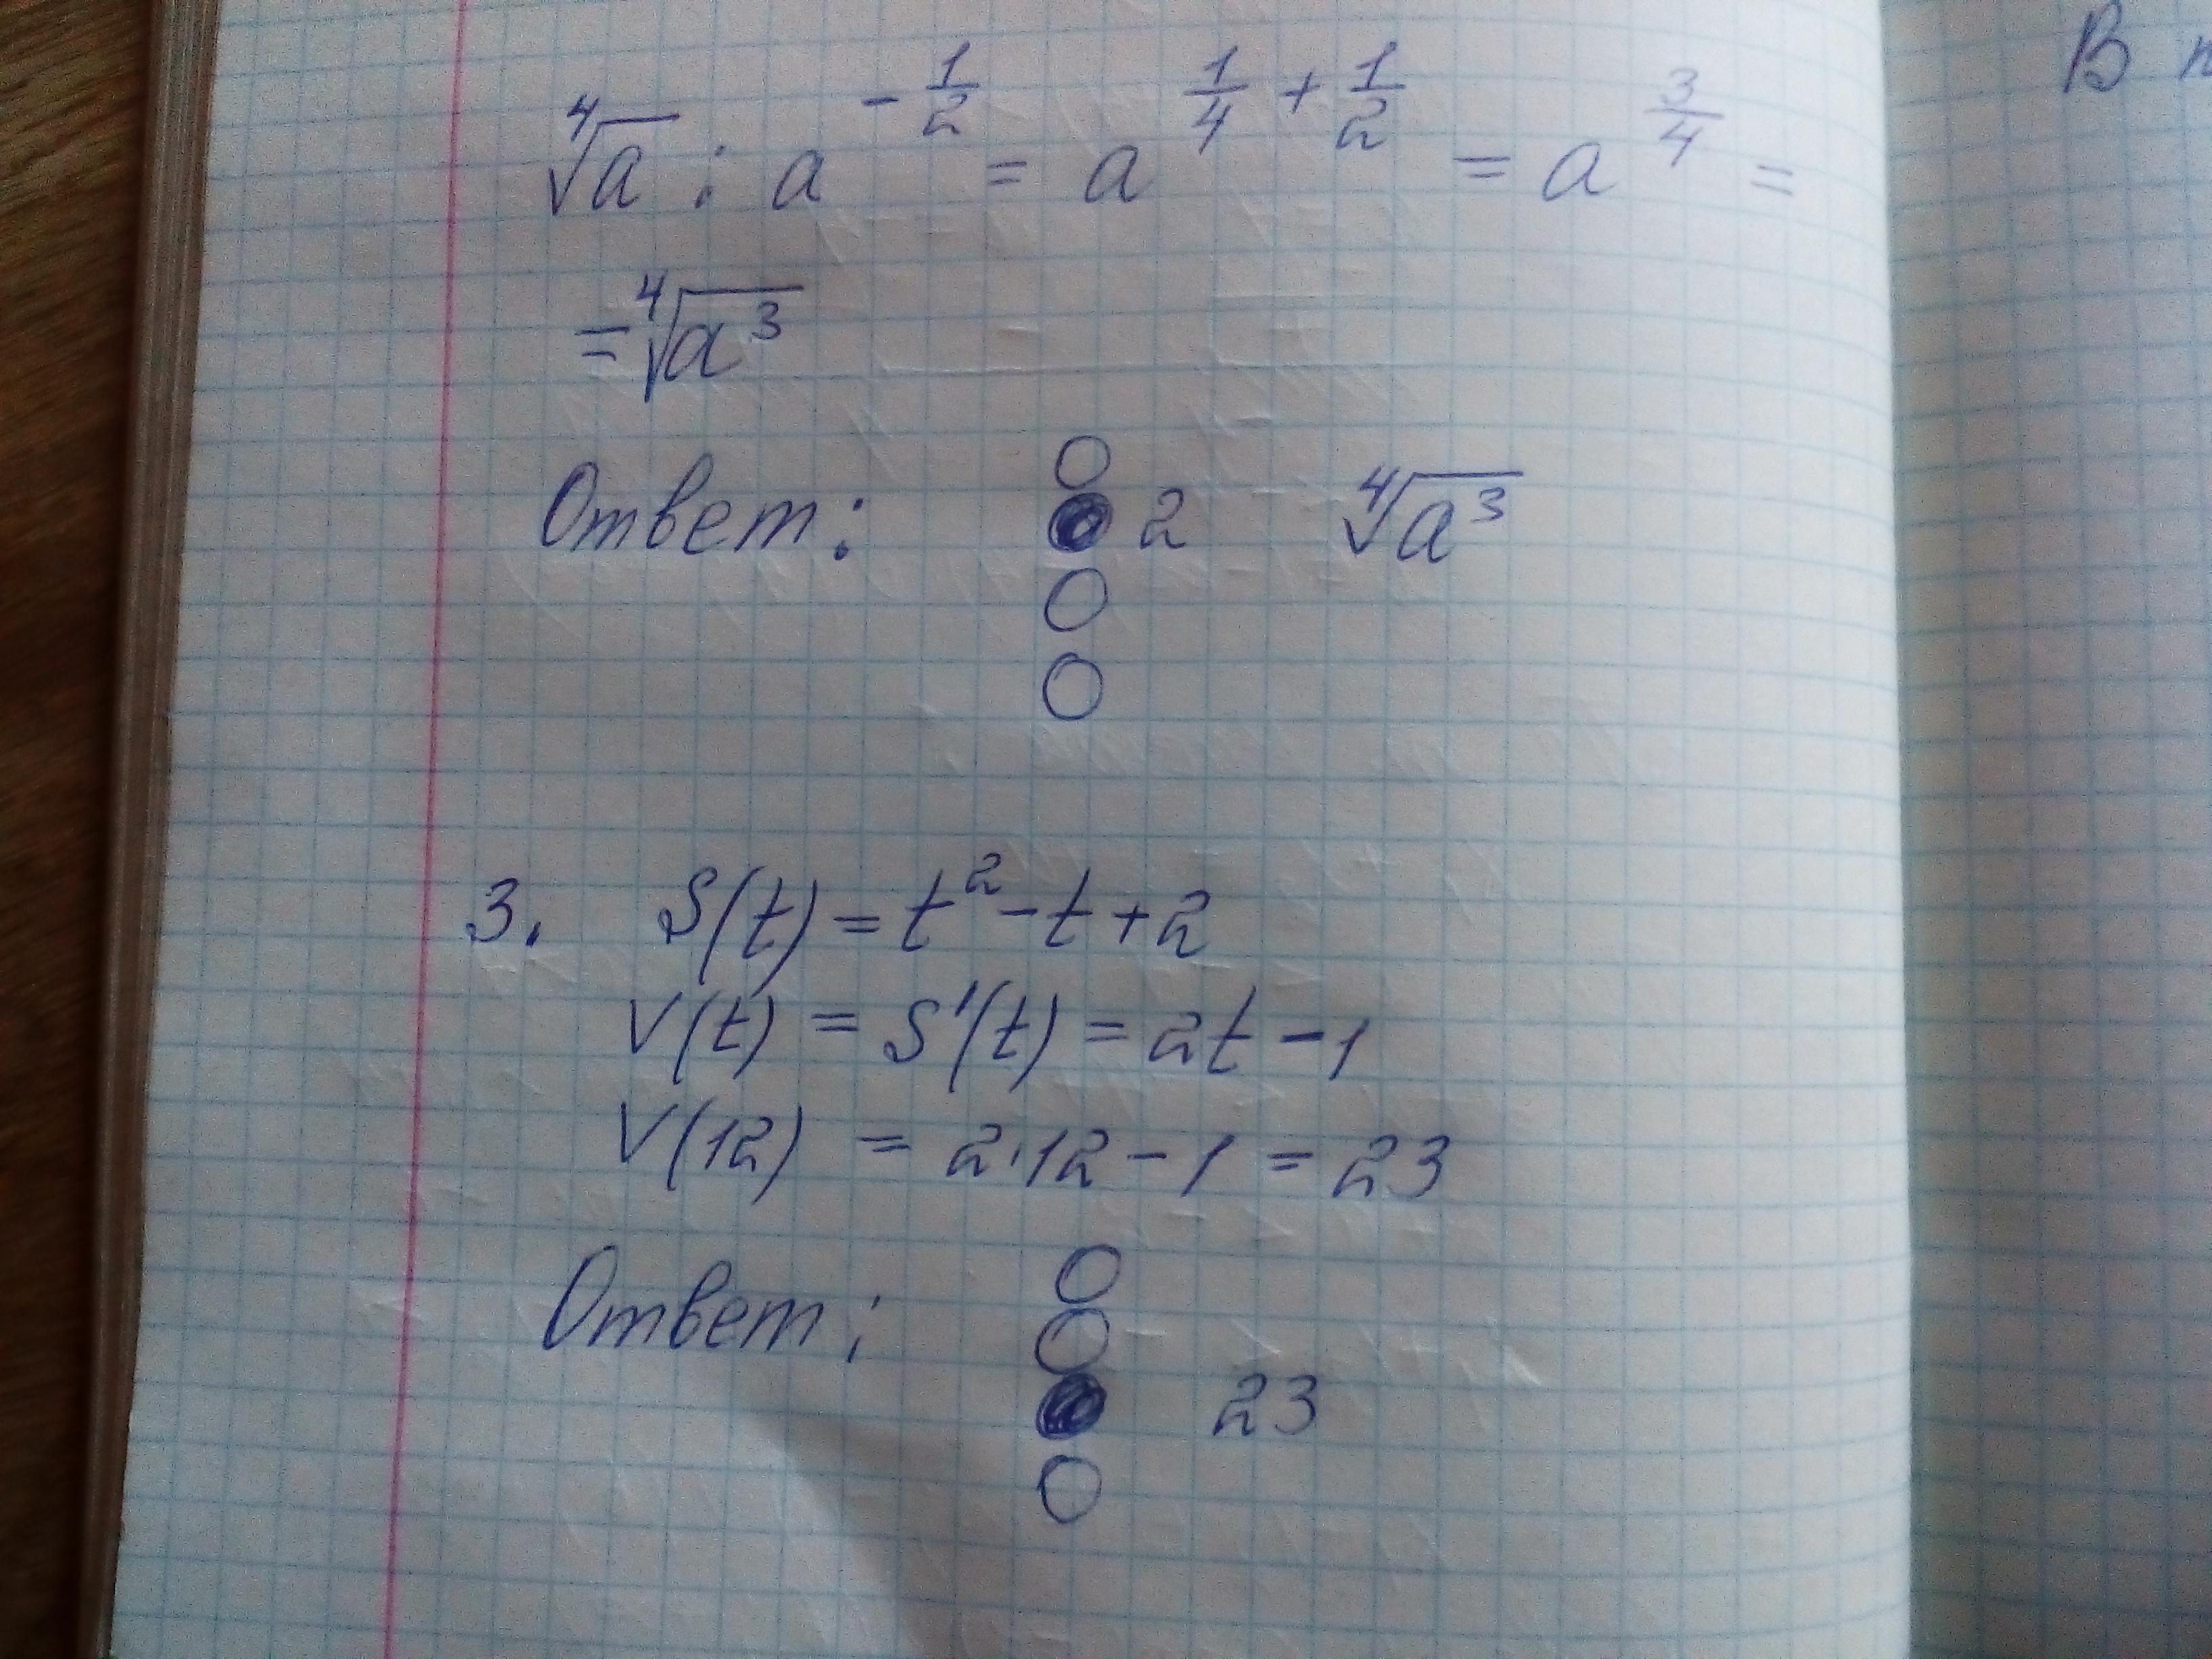 ⁴√a : a^(-1/2) = a^(1/4 + 1/2) = a^(3/4) =
= ⁴√a³
Ответ: 2 ⁴√a³
3. S(t) = t² - t + 2
V(t) = S'(t) = 2t - 1
V(12) = 2·12 - 1 = 23
Ответ: 23
В